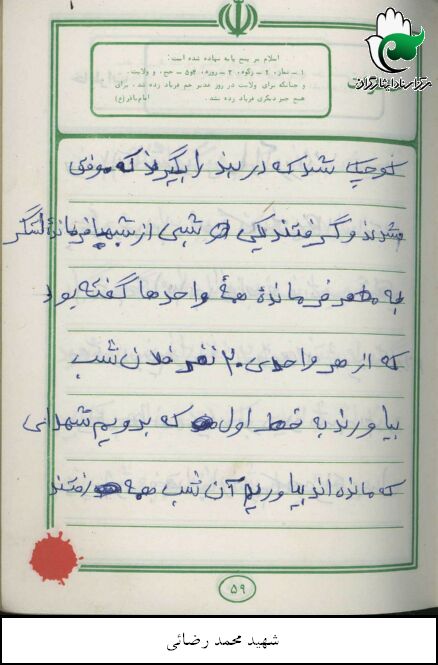 مرکز اسناد ایثارگران
اسلام بر پنج پایه نهاده شده است:
۱ ـ نماز، ۲ ـ زکوة، ۳ ـ روزه، ۴ـ حج، و ولایت.
و چنانکه برای ولایت در روز غدیر خم فریاد زده شد، برای
هیچ چیز دیگری فریاد زده نشد. امام باقر(ع)
کوچک شد که دربند را بگیرند که موفق
شدند و گرفتند یکی شبی از شبها فرماندهٔ لشگر
به فرماندهٔ همهٔ واحدها گفته بود
که از هر واحدی ۲۰ نفر فلان شب
بیاورند به خط اول که برویم شهدائی
که مانده‌اند بیاوریم آن شب همه رفتند
۵۹
شهید محمد رضائی